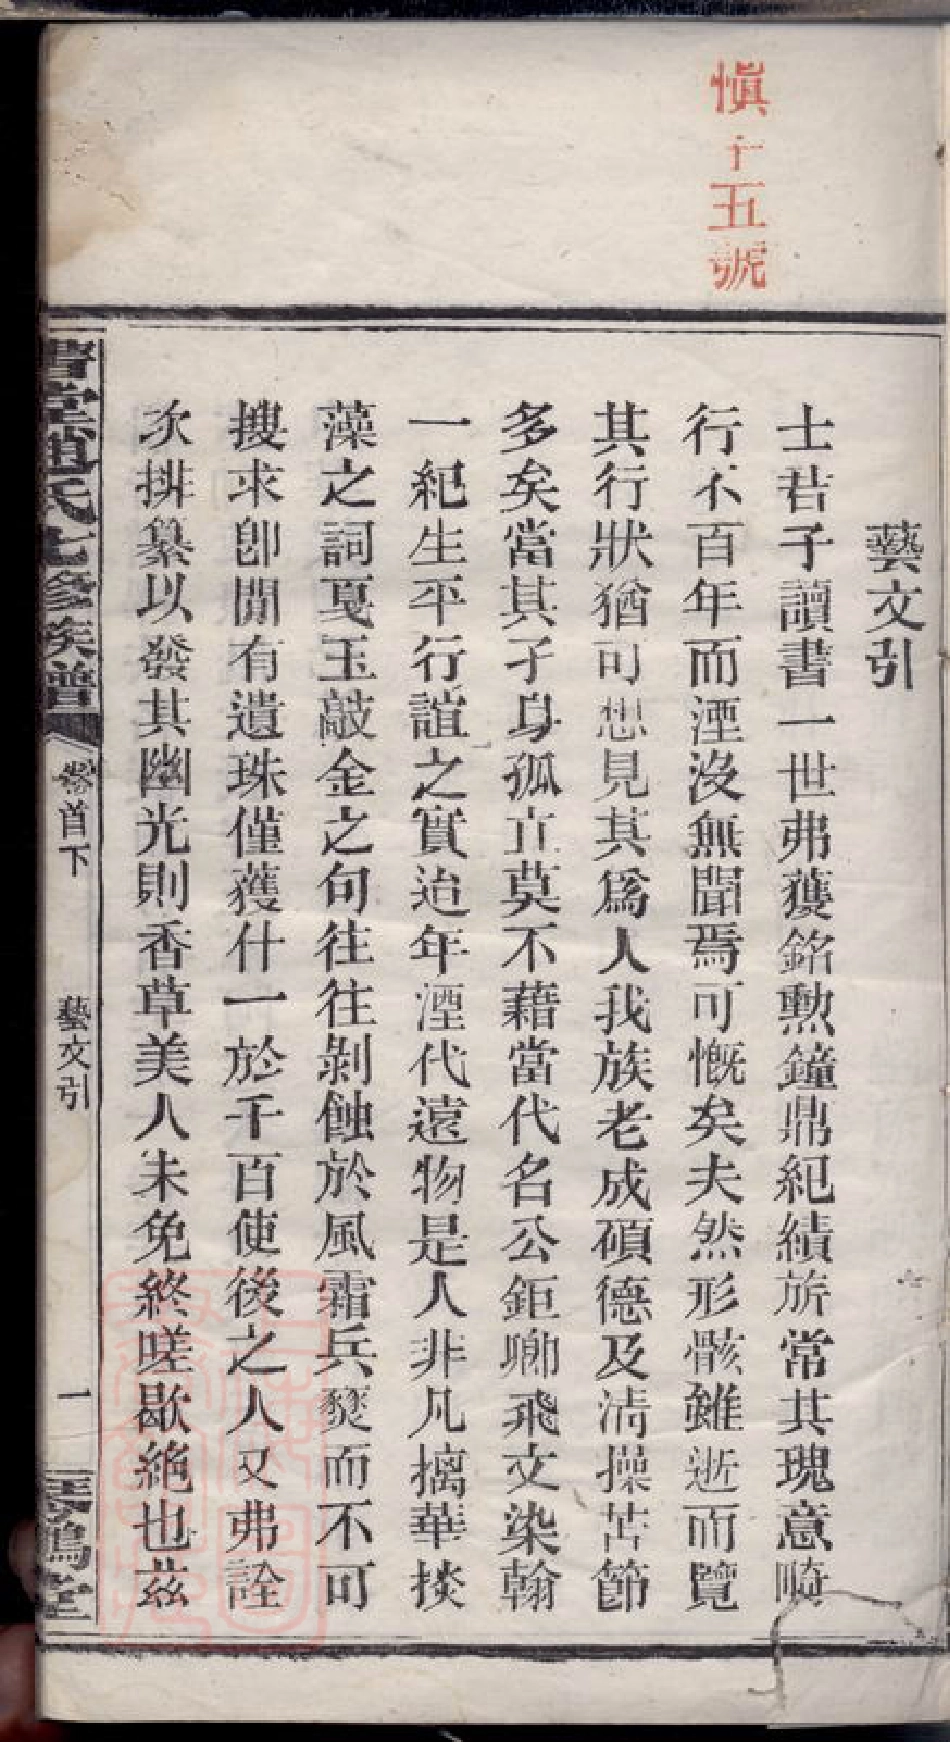 慎十五號
藝文引
士君子讀書一世弗獲銘勲鐘鼎紀績旂常其瑰意畸
行不百年而湮沒無聞焉可慨矣夫然形骸雖逝而覽
其行狀猶可想見其爲人我族老成碩德及清操苦節
多矣當其孑身孤直莫不藉當代名公鉅卿飛文染翰
一紀生平行誼之實迨年湮代遠物是人非凡摛華掞
藻之詞戛玉敲金之句往往剝蝕於風霜兵燹而不可
搜求卽閒有遺珠僅獲什一於千百使後之人又弗詮
次排纂以發其幽光則香草美人未免終嗟歇絶也茲
曹堂趙氏七修族譜
卷首下
藝文引
一
琴鶴堂